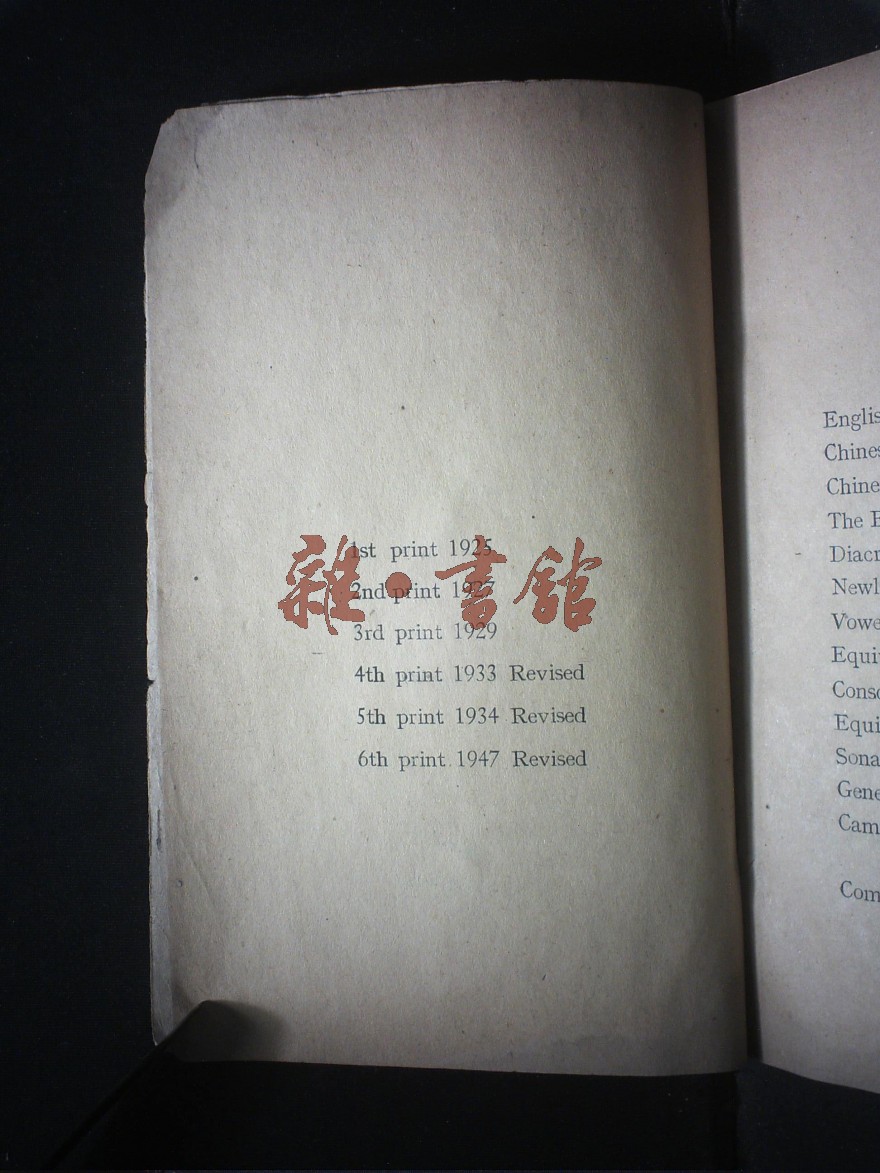 1st print 1925
2nd print 1927
3rd print 1929
4th print 1933 Revised
5th print 1934 Revised
6th print 1947 Revised
雜•書館
Englis
Chines
Chine
The E
Diacr
Newl
Vowe
Equi
Conso
Equi
Sona
Gene
Cam
Com